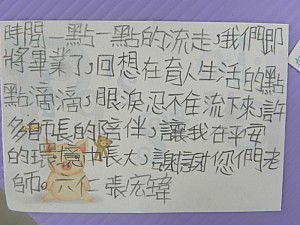 時間一點一點的流走，我們即
將畢業了，回想在育人生活的點
點滴滴，眼淚忍不住流下來，許
多師長的陪伴，讓我在平安
的環境中長大，謝謝您們老
師。六仁 張宏瑋